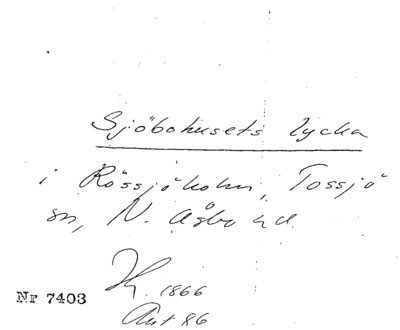 Sjöbohusets lycka
i Rössjöholm, Tossjö
sn, N. Åsbo hd.
1866
Nr 7403
Akt 86